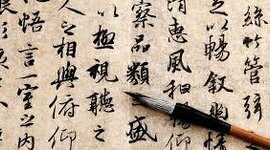 絲竹管弦
以暢敘幽情
惠風和暢
察品類之盛
以極視聽之
人之相與俯仰
悟言一室之內